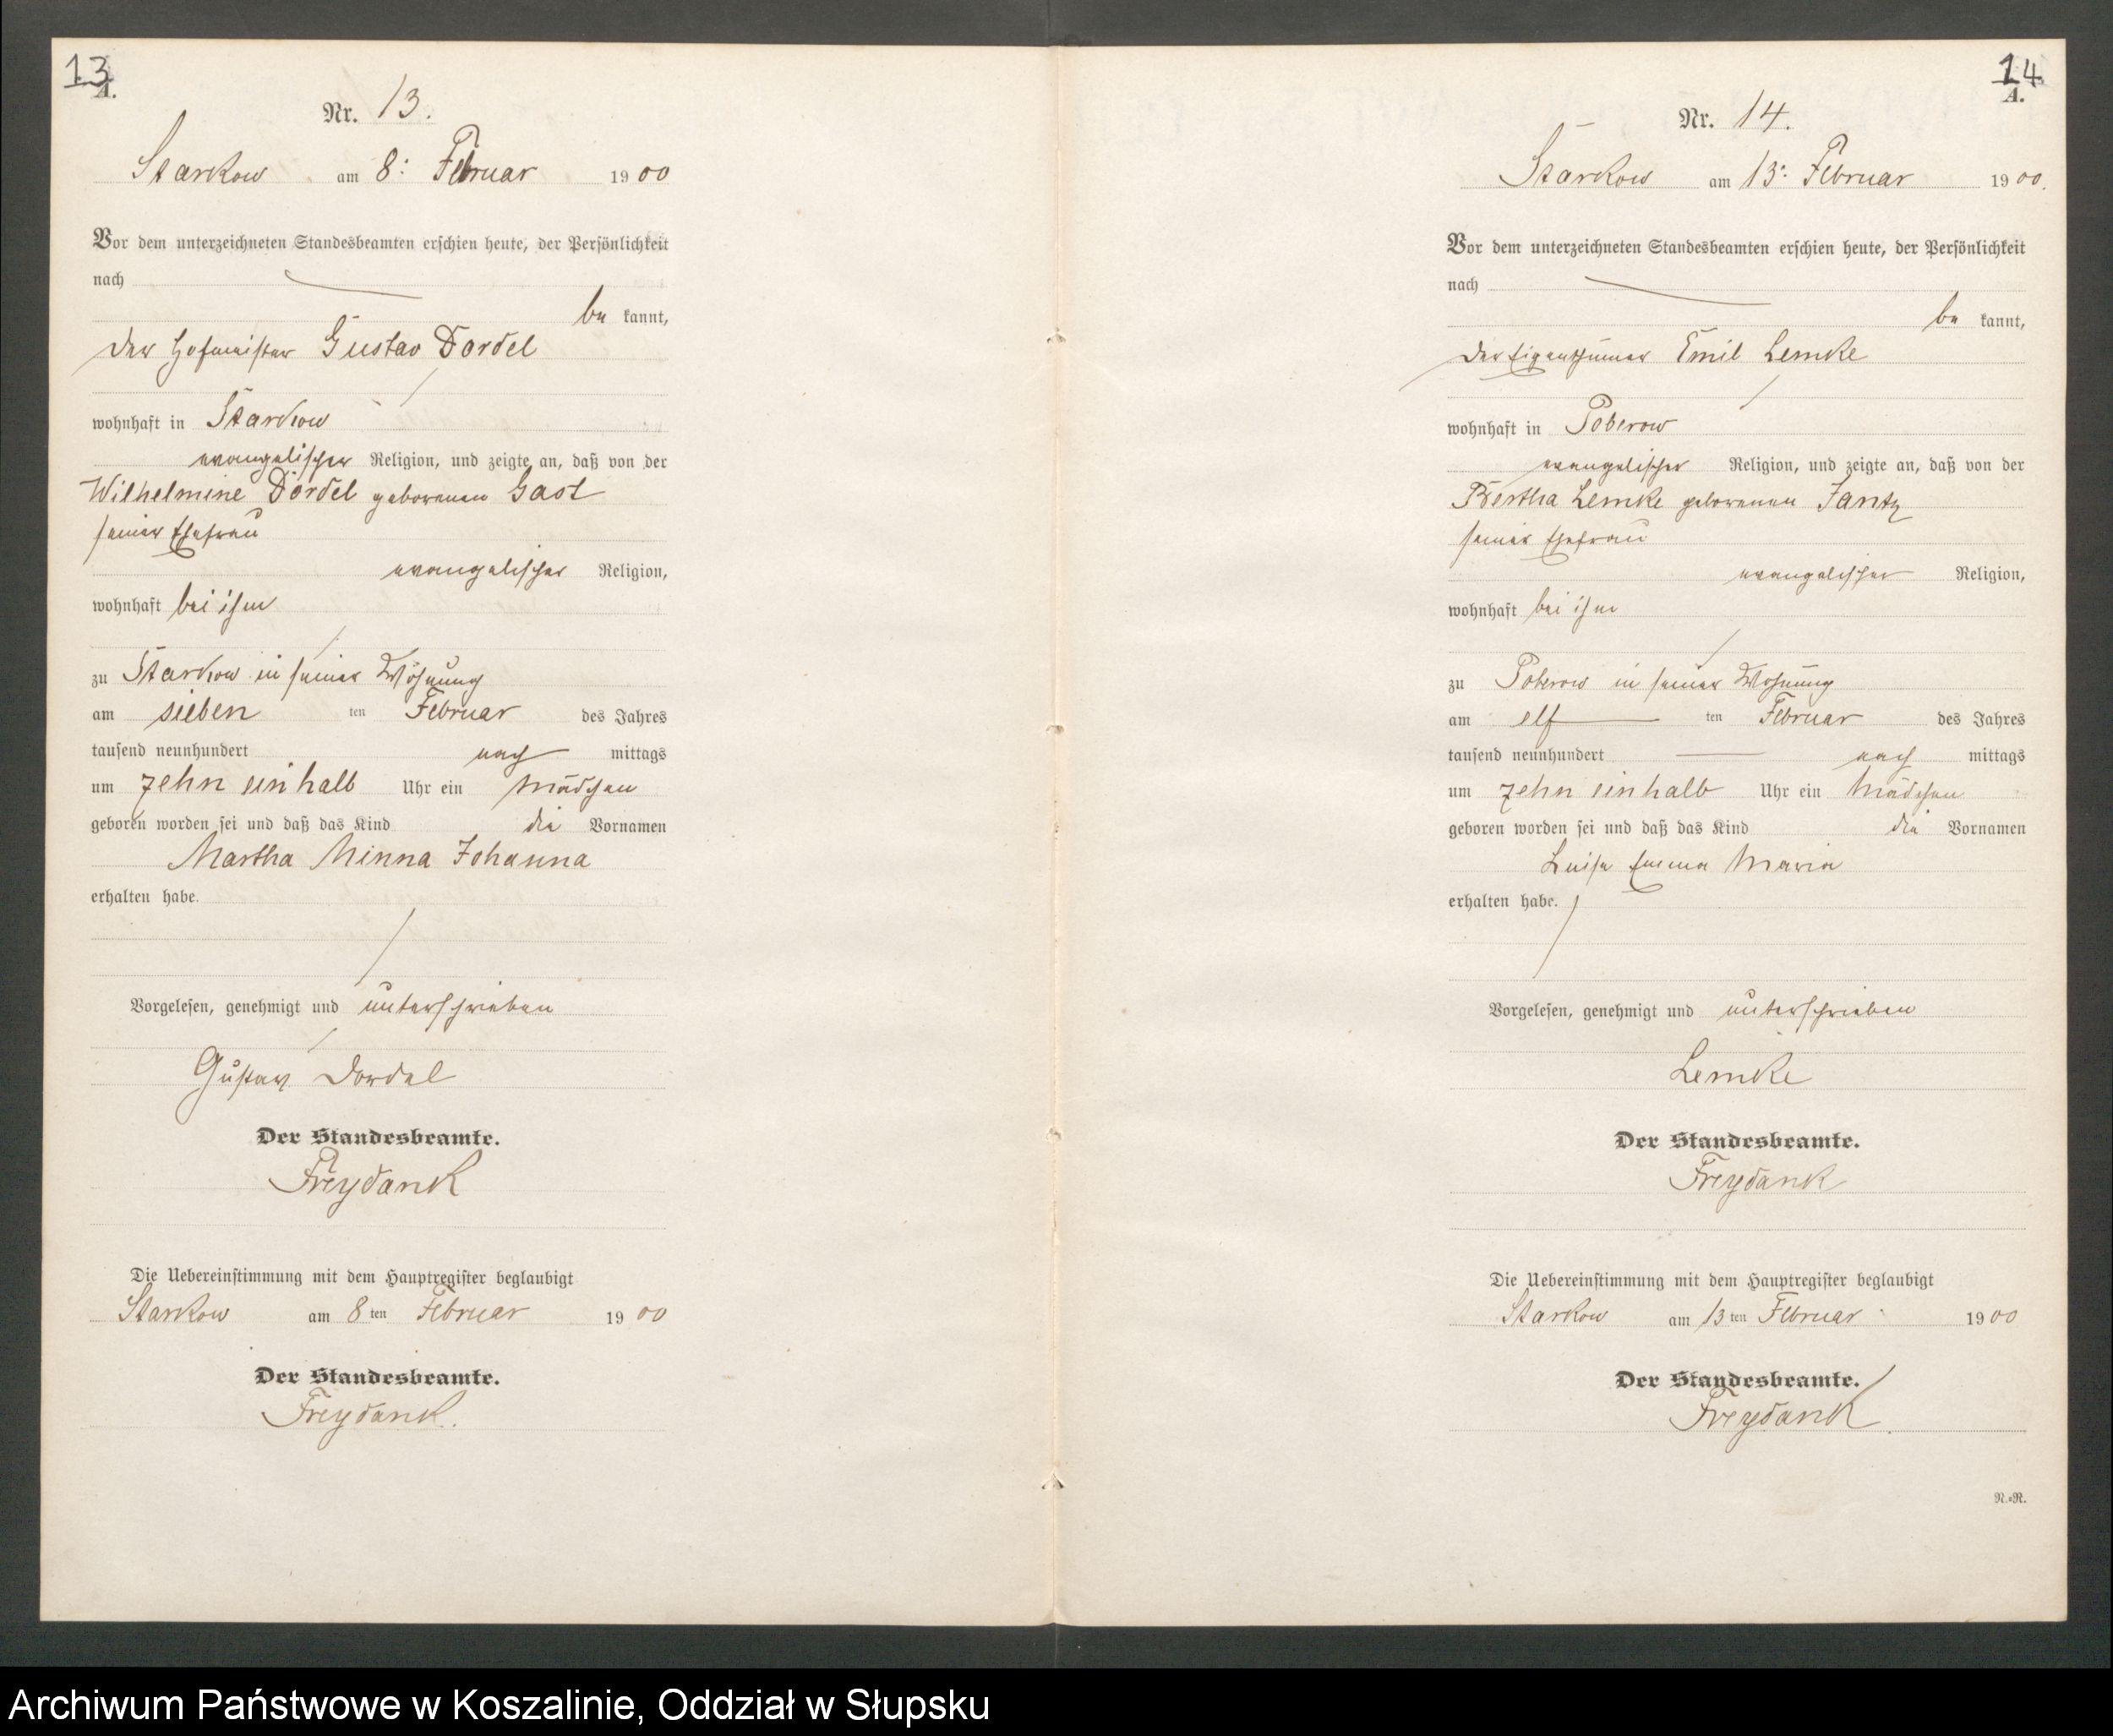 13
A.
Nr. 13.
Starkow am 8: Februar 1900
Vor dem unterzeichneten Standesbeamten erschien heute, der Persönlichkeit
nach
be kannt,
der Hofmeister Gustav Dordel
wohnhaft in Starkow
evangelischer Religion, und zeigte an, daß von der
Wilhelmine Dordel geborenen Gast
seiner Ehefrau
evangelischer Religion,
wohnhaft bei ihm
zu Starkow in seiner Wohnung
am sieben ten Februar des Jahres
tausend neunhundert nach mittags
um zehn einhalb Uhr ein Mädchen
geboren worden sei und daß das Kind die Vornamen
Martha Minna Johanna
erhalten habe.
Vorgelesen, genehmigt und unterschrieben
Gustav Dordel
Der Standesbeamte.
Freydank
Die Uebereinstimmung mit dem Hauptregister beglaubigt
Starkow am 8ten Februar 1900
Der Standesbeamte.
Freydank.
14
A.
Nr. 14.
Starkow am 13: Februar 1900.
Vor dem unterzeichneten Standesbeamten erschien heute, der Persönlichkeit
nach
be kannt,
der Eigenthümer Emil Lemke
wohnhaft in Poberow
evangelischer Religion, und zeigte an, daß von der
Bertha Lemke geborenen Jantz
seiner Ehefrau
evangelischer Religion,
wohnhaft bei ihm
zu Poberow in seiner Wohnung
am elf ten Februar des Jahres
tausend neunhundert nach mittags
um zehn einhalb Uhr ein Mädchen
geboren worden sei und daß das Kind die Vornamen
Luise Emma Maria
erhalten habe.
Vorgelesen, genehmigt und unterschrieben
Lemke
Der Standesbeamte.
Freydank
Die Uebereinstimmung mit dem Hauptregister beglaubigt
Starkow am 13ten Februar 1900
Der Standesbeamte.
Freydank.
N.=R.
Archiwum Państwowe w Koszalinie, Oddział w Słupsku